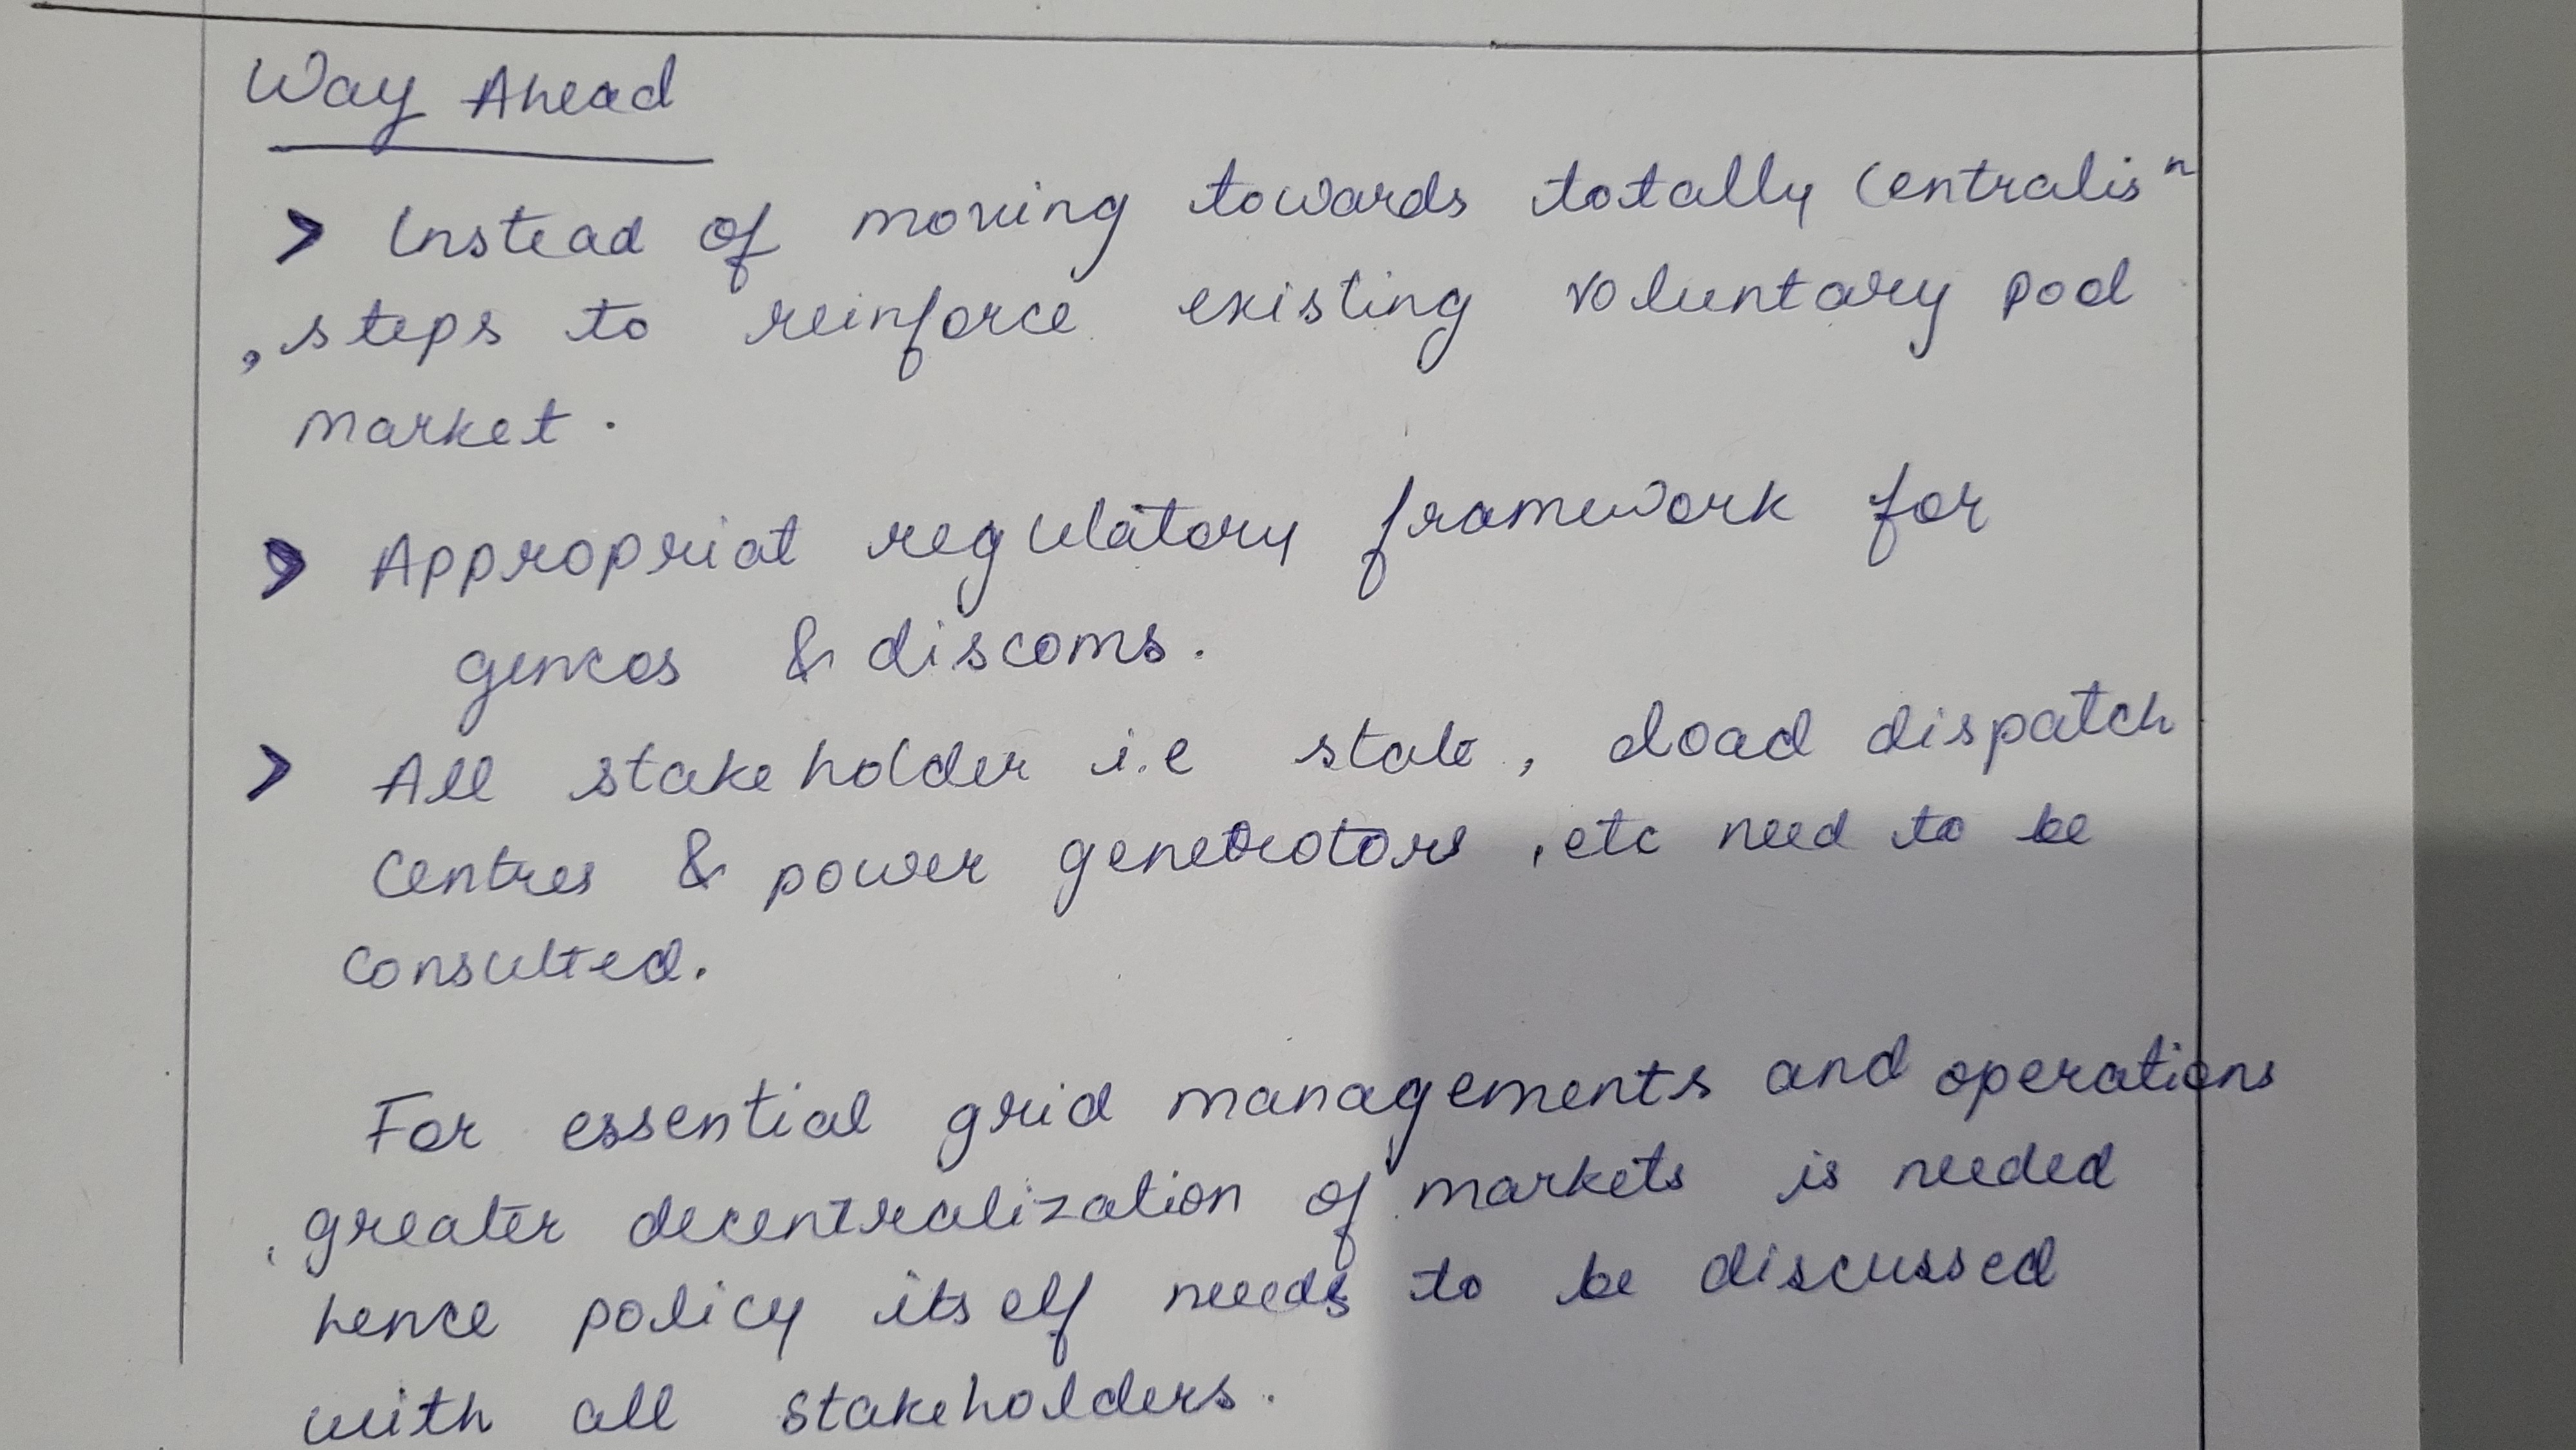 Way Ahead
> Instead of moving towards totally Centralisⁿ
, steps to reinforce existing voluntary pool
market.
> Appropriat regulatory framework for
gencos & discoms.
> All stakeholder i.e state, load dispatch
Centres & power generators, etc need to be
consulted.
For essential grid managements and operations
, greater decentralization of markets is needed
hence policy itself needs to be discussed
with all stakeholders.